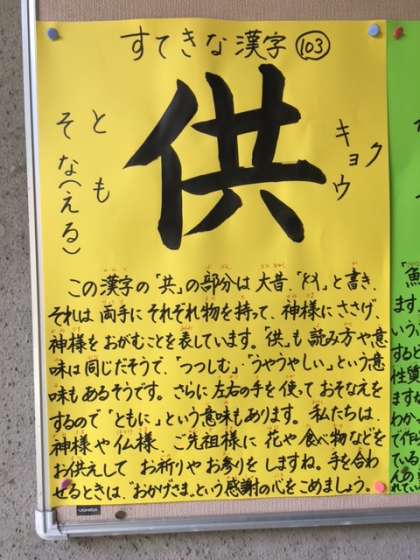 すてきな漢字 103
供
キョウ
ク
とも
そな(える)
この漢字の「共」の部分は大昔、「」と書き、
それは両手にそれぞれ物を持って、神様にささげ、
神様をおがむことを表しています。「供」も読み方や意
味は同じだそうで、「つつしむ」・「うやうやしい」という意
味もあるそうです。さらに左右の手を使っておそなえを
するので「ともに」という意味もあります。私たちは、
神様や仏様、ご先祖様に花や食べ物などを
お供えしてお祈りやお参りをしますね。手を合わ
せるときは、“おかげさま”という感謝の心をこめましょう。
「魚
ます。
いう
すると
性質
ますが
わかっ
で作
ている